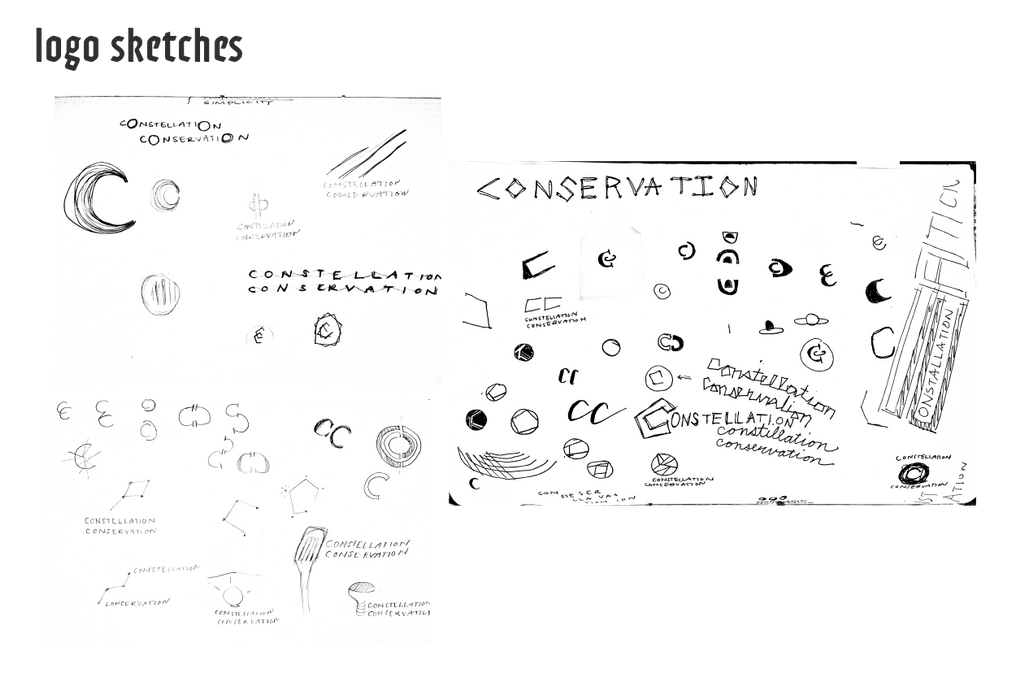 logo sketches
SIMPLICITY
CONSTELLATION
CONSERVATION
CONSTELLATION
CONSERVATION
CONSTELLATION
CONSERVATION
CONSTELLATION
CONSERVATION
C
CC
CONSTELLATION
CONSERVATION
CONSTELLATION
CONSERVATION
CONSTELLATION
CONSERVATION
CONSTELLATION
CONSERVATION
CONSTELLATION
CONSERVATION
CONSERVATION
CC
CONSTELLATION
CONSERVATION
CC
CC
Constellation
Conservation
CONSTELLATION
constellation
conservation
CONSTELLATION
CONSERVATION
C
CONSTELLATION
CONSERVATION